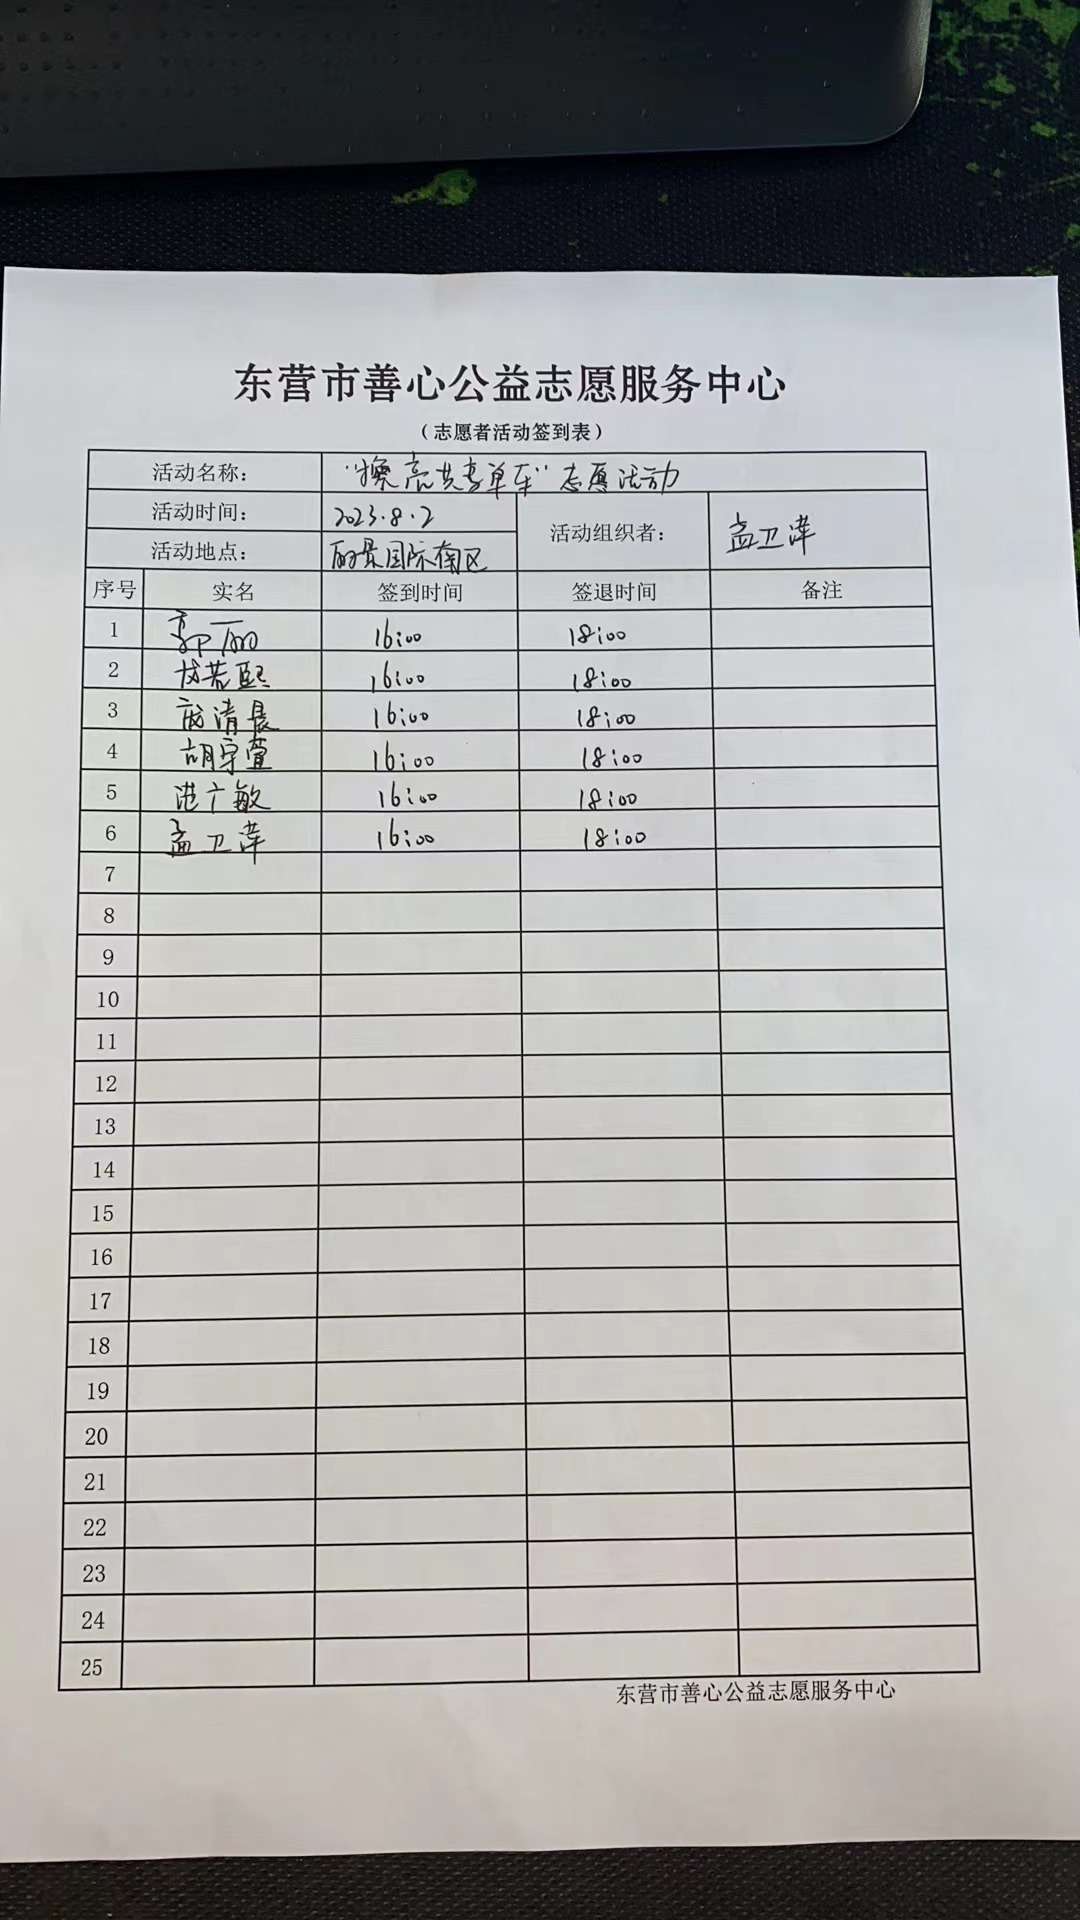 东营市善心公益志愿服务中心
（志愿者活动签到表）
活动名称： “擦亮共享单车”志愿活动
活动时间： 2023.8.2 活动组织者： 孟卫萍
活动地点： 丽景国际南区
序号 实名 签到时间 签退时间 备注
1 郭丽 16:00 18:00
2 若熙 16:00 18:00
3 清晨 16:00 18:00
4 胡宇萱 16:00 18:00
5 广敏 16:00 18:00
6 孟卫萍 16:00 18:00
7
8
9
10
11
12
13
14
15
16
17
18
19
20
21
22
23
24
25
东营市善心公益志愿服务中心